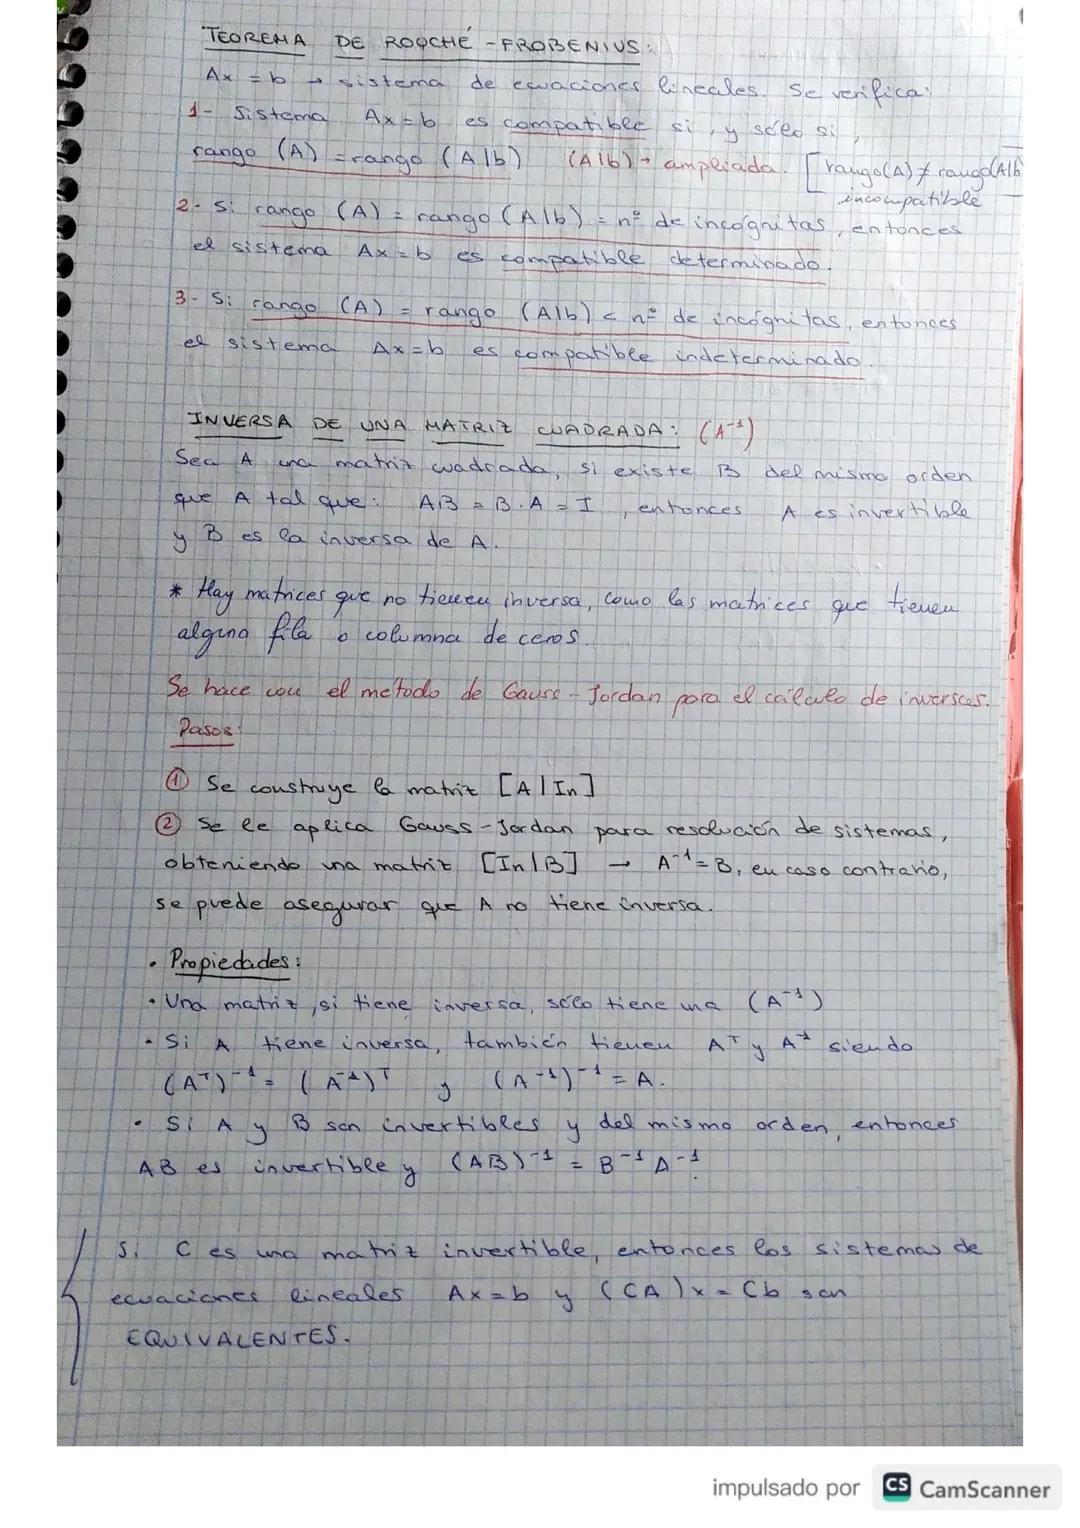 TEOREMA DE ROUCHÉ - FROBENIUS:
Ax = b → sistema de ecuaciones lineales. Se verifica:
1- Sistema Ax=b es compatible si, y sólo si,
rango (A) = rango (A|b) (A|b) → ampliada. [rango(A) ≠ rango(A|b)
incompatible
2- Si rango (A) = rango (A|b) = nº de incógnitas, entonces
el sistema Ax=b es compatible determinado.
3- Si rango (A) = rango (A|b) < nº de incógnitas, entonces
el sistema Ax=b es compatible indeterminado.
INVERSA DE UNA MATRIZ CUADRADA: (A⁻¹)
Sea A una matriz cuadrada, si existe B del mismo orden
que A tal que: AB = B.A = I, entonces A es invertible
y B es la inversa de A.
* Hay matrices que no tienen inversa, como las matrices que tienen
alguna fila o columna de ceros.
Se hace con el metodo de Gauss-Jordan para el cálculo de inversas.
Pasos:
① Se construye la matriz [A | In]
② Se le aplica Gauss-Jordan para resolución de sistemas,
obteniendo una matriz [In | B] → A⁻¹ = B, en caso contrario,
se puede asegurar que A no tiene inversa.
• Propiedades:
• Una matriz, si tiene inversa, sólo tiene una (A⁻¹)
• Si A tiene inversa, también tienen Aᵀ y A⁻¹ siendo
(Aᵀ)⁻¹ = (A⁻¹)ᵀ y (A⁻¹)⁻¹ = A.
• Si A y B son invertibles y del mismo orden, entonces
AB es invertible y (AB)⁻¹ = B⁻¹A⁻¹.
Si C es una matriz invertible, entonces los sistemas de
ecuaciones lineales Ax=b y (CA)x = Cb son
EQUIVALENTES.
impulsado por CS CamScanner